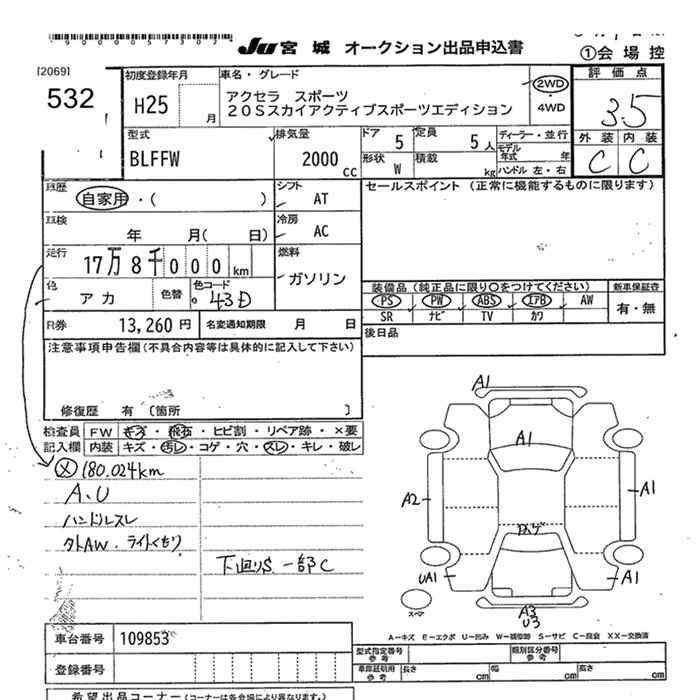 JU 宮城 オークション出品申込書
①会場控
[2069]
532
初度登録年月
H25 月
車名・グレード
アクセラ スポーツ
20Sスカイアクティブスポーツエディション
2WD
・
4WD
評価点
3.5
外装 内装
C C
型式
BLFFW
排気量
2000 cc
ドア 5
定員 5人
形状 W
積載 kg
ディーラー・並行
モデル年式 年
ハンドル 左・右
車歴
自家用・( )
シフト
AT
セールスポイント (正常に機能するものに限ります)
車検
年 月( 日)
冷房
AC
走行
17万8千000km
燃料
ガソリン
色
アカ
色替
色コード
43D
装備品 (純正品に限り○をつけてください)
新車保証書
PS PW ABS エアB AW
SR ナビ TV カワ
有・無
R券 13,260円
名変通知期限 月 日
後日品
注意事項申告欄(不具合内容等は具体的に記入して下さい)
修復歴 有 〔箇所 〕
検査員記入欄
FW キズ・飛石・ヒビ割・リペア跡・×要
内装 キズ・汚レ・コゲ・穴・スレ・キレ・破レ
メ 180.024km
A、U
ハンドルスレ
タトAW、ライトくもり
下廻りS 一部C
A1
A1
A2
A1
UA1
A1
A3
U3
スペア
A−キズ E−エクボ U−凹み W−補修跡 S−サビ C−腐食 XX−交換済
車台番号 109853
登録番号
型式指定番号 参考
類別区分番号 参考
車庫証明用 参考
長さ cm
幅 cm
高さ cm
希望出品コーナー(コーナーは各会場により異なります。)